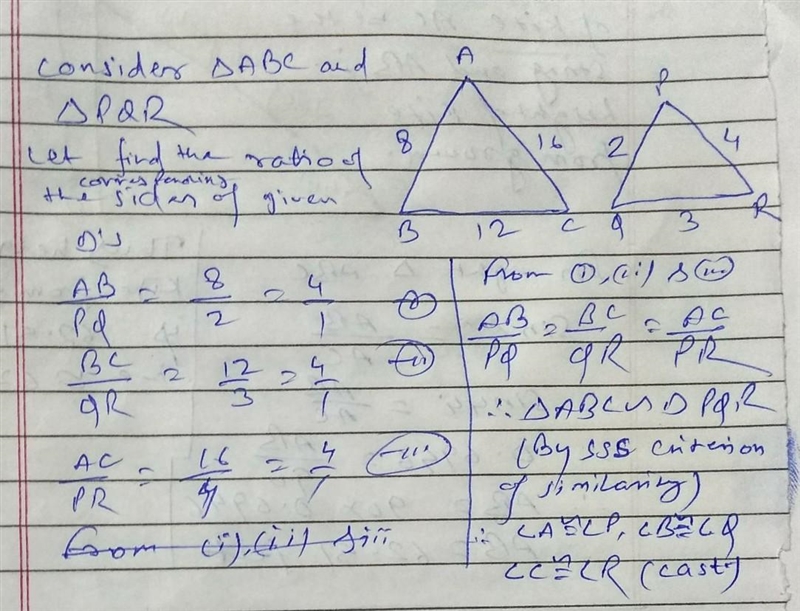 Consider ΔABC and
ΔPQR
Let find the ratio of
corresponding
the sides of given
Δ's
A
8
16
B
12
C
P
2
4
Q
3
R
AB/PQ = 8/2 = 4/1 (i)
BC/QR = 12/3 = 4/1 (ii)
AC/PR = 16/4 = 4/1 (iii)
From (i), (ii) & iii
from (i), (ii) & (iii)
AB/PQ = BC/QR = AC/PR
∴ ΔABC ~ ΔPQR
(By SSS criterion
of similarity)
∴ ∠A≅∠P, ∠B≅∠Q
∠C≅∠R (cast)